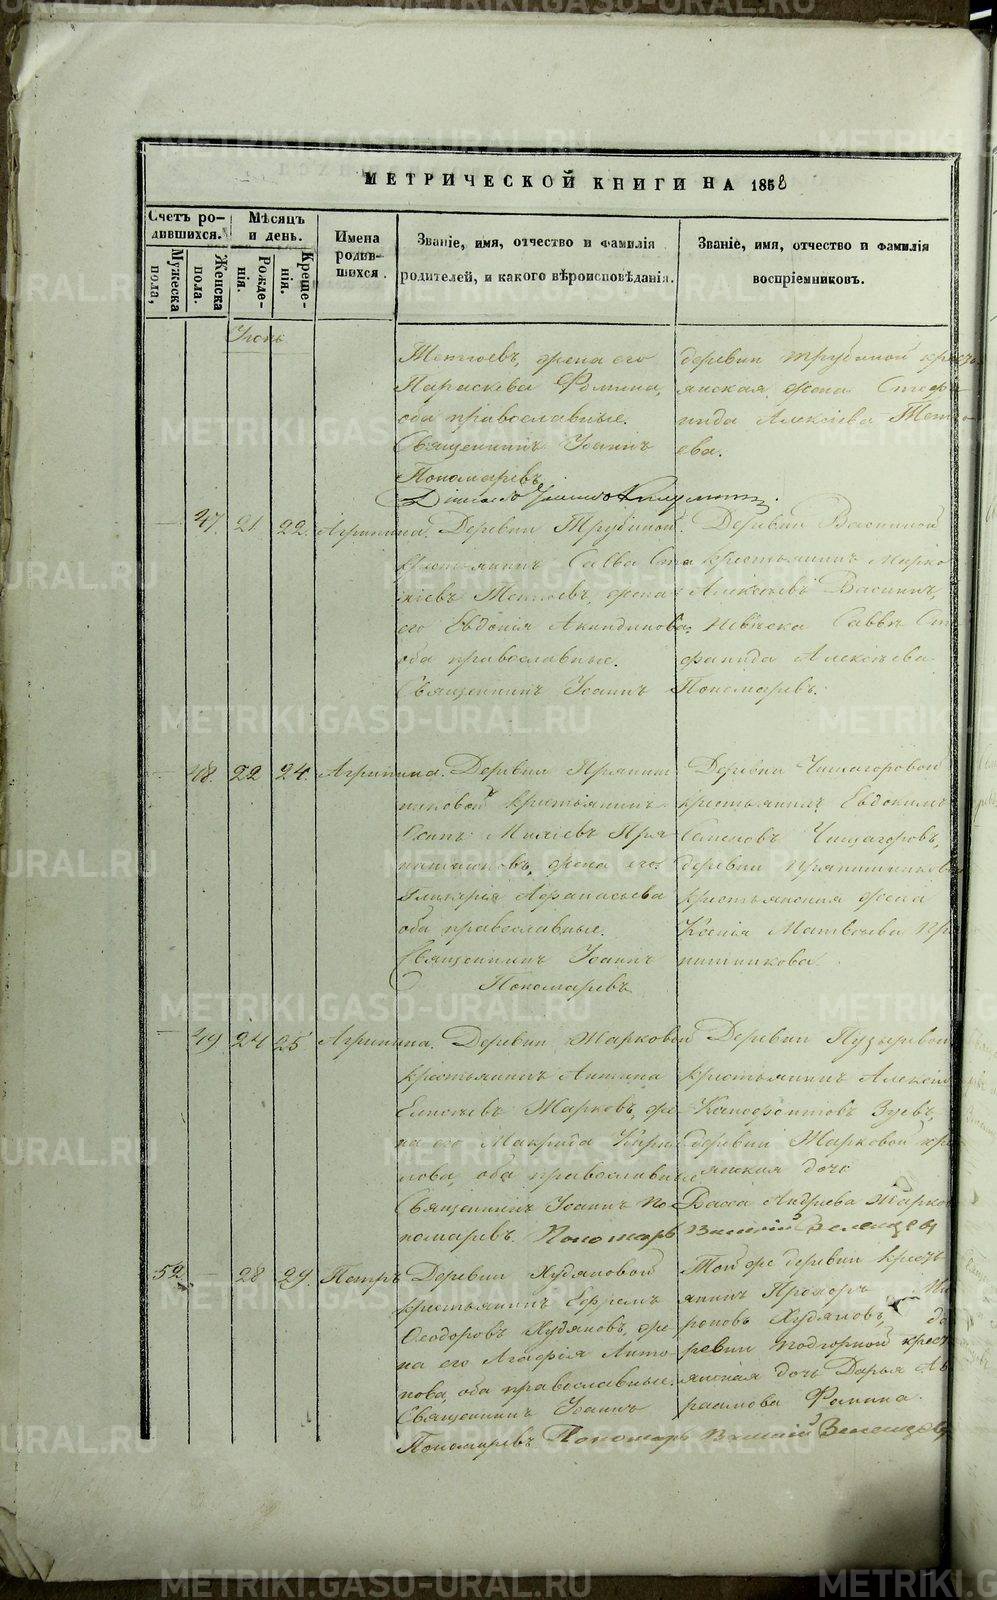 МЕТРИЧЕСКОЙ КНИГИ НА 1858
Счетъ ро-
дившихся.
Мужеска
пола,
Женска
пола.
Мѣсяцъ
и день.
Рожде-
нія.
Креще-
нія.
Имена
родив-
шихся.
Званіе, имя, отчество и фамилія
родителей, и какого вѣроисповѣданія.
Званіе, имя, отчество и фамилія
воспріемниковъ.
Іюнь
жена его
Параскева Фомина,
оба православные.
Священникъ Іоаннъ
Пономаревъ
деревни Трубиной кресть
янская жена Стефа
нида Алексіева
ева.
47. 21 22. Агрипина. Деревни Трубиной
крестьянинъ Савва
жена
его Евдокія Акиндинова
оба православные.
Священникъ Іоаннъ Пономаревъ.
Деревни Васиной
крестьянинъ
Алексіевъ Васинъ,
Саввы Сте
фанида Алексіева
48. 22 24. Агрипина. Деревни Прянич
никовой крестьянинъ
Пря
ничниковъ, жена его
Гликерія Афанасьева
оба православные.
Священникъ Іоаннъ
Пономаревъ
Деревни Чищагоровой
крестьянинъ Евдокимъ
Семеновъ Чищагоровъ,
деревни Пряничниковой
крестьянская жена
Ксенія Матвѣева Пря
ничникова.
49 24 25 Агрипина. Деревни Жарковой
крестьянинъ Антипа
Жарковъ, же
на его Макрида
нова, оба православные
Священникъ Іоаннъ По
номаревъ. Пономарь Василій Зеленцовъ
Деревни Пузыревой
крестьянинъ Алексій
Ксенофонтовъ Зуевъ,
деревни Жарковой кре
янская дочь
Васса Андреева Жаркова
52 28 29. Петръ Деревни Худяковой
крестьянинъ Ефремъ
Ѳеодоровъ Худяковъ, же
на его Агафія Анто
нова, оба православные.
Священникъ Іоаннъ
Пономаревъ Пономарь Василій Зеленцовъ
Той же деревни кресть
янинъ Прохоръ Ми
роновъ Худяковъ, де
ревни Подгорной крест
янская дочь Дарья Ав
раамова Фомина.
METRIKI.GASO-URAL.RU